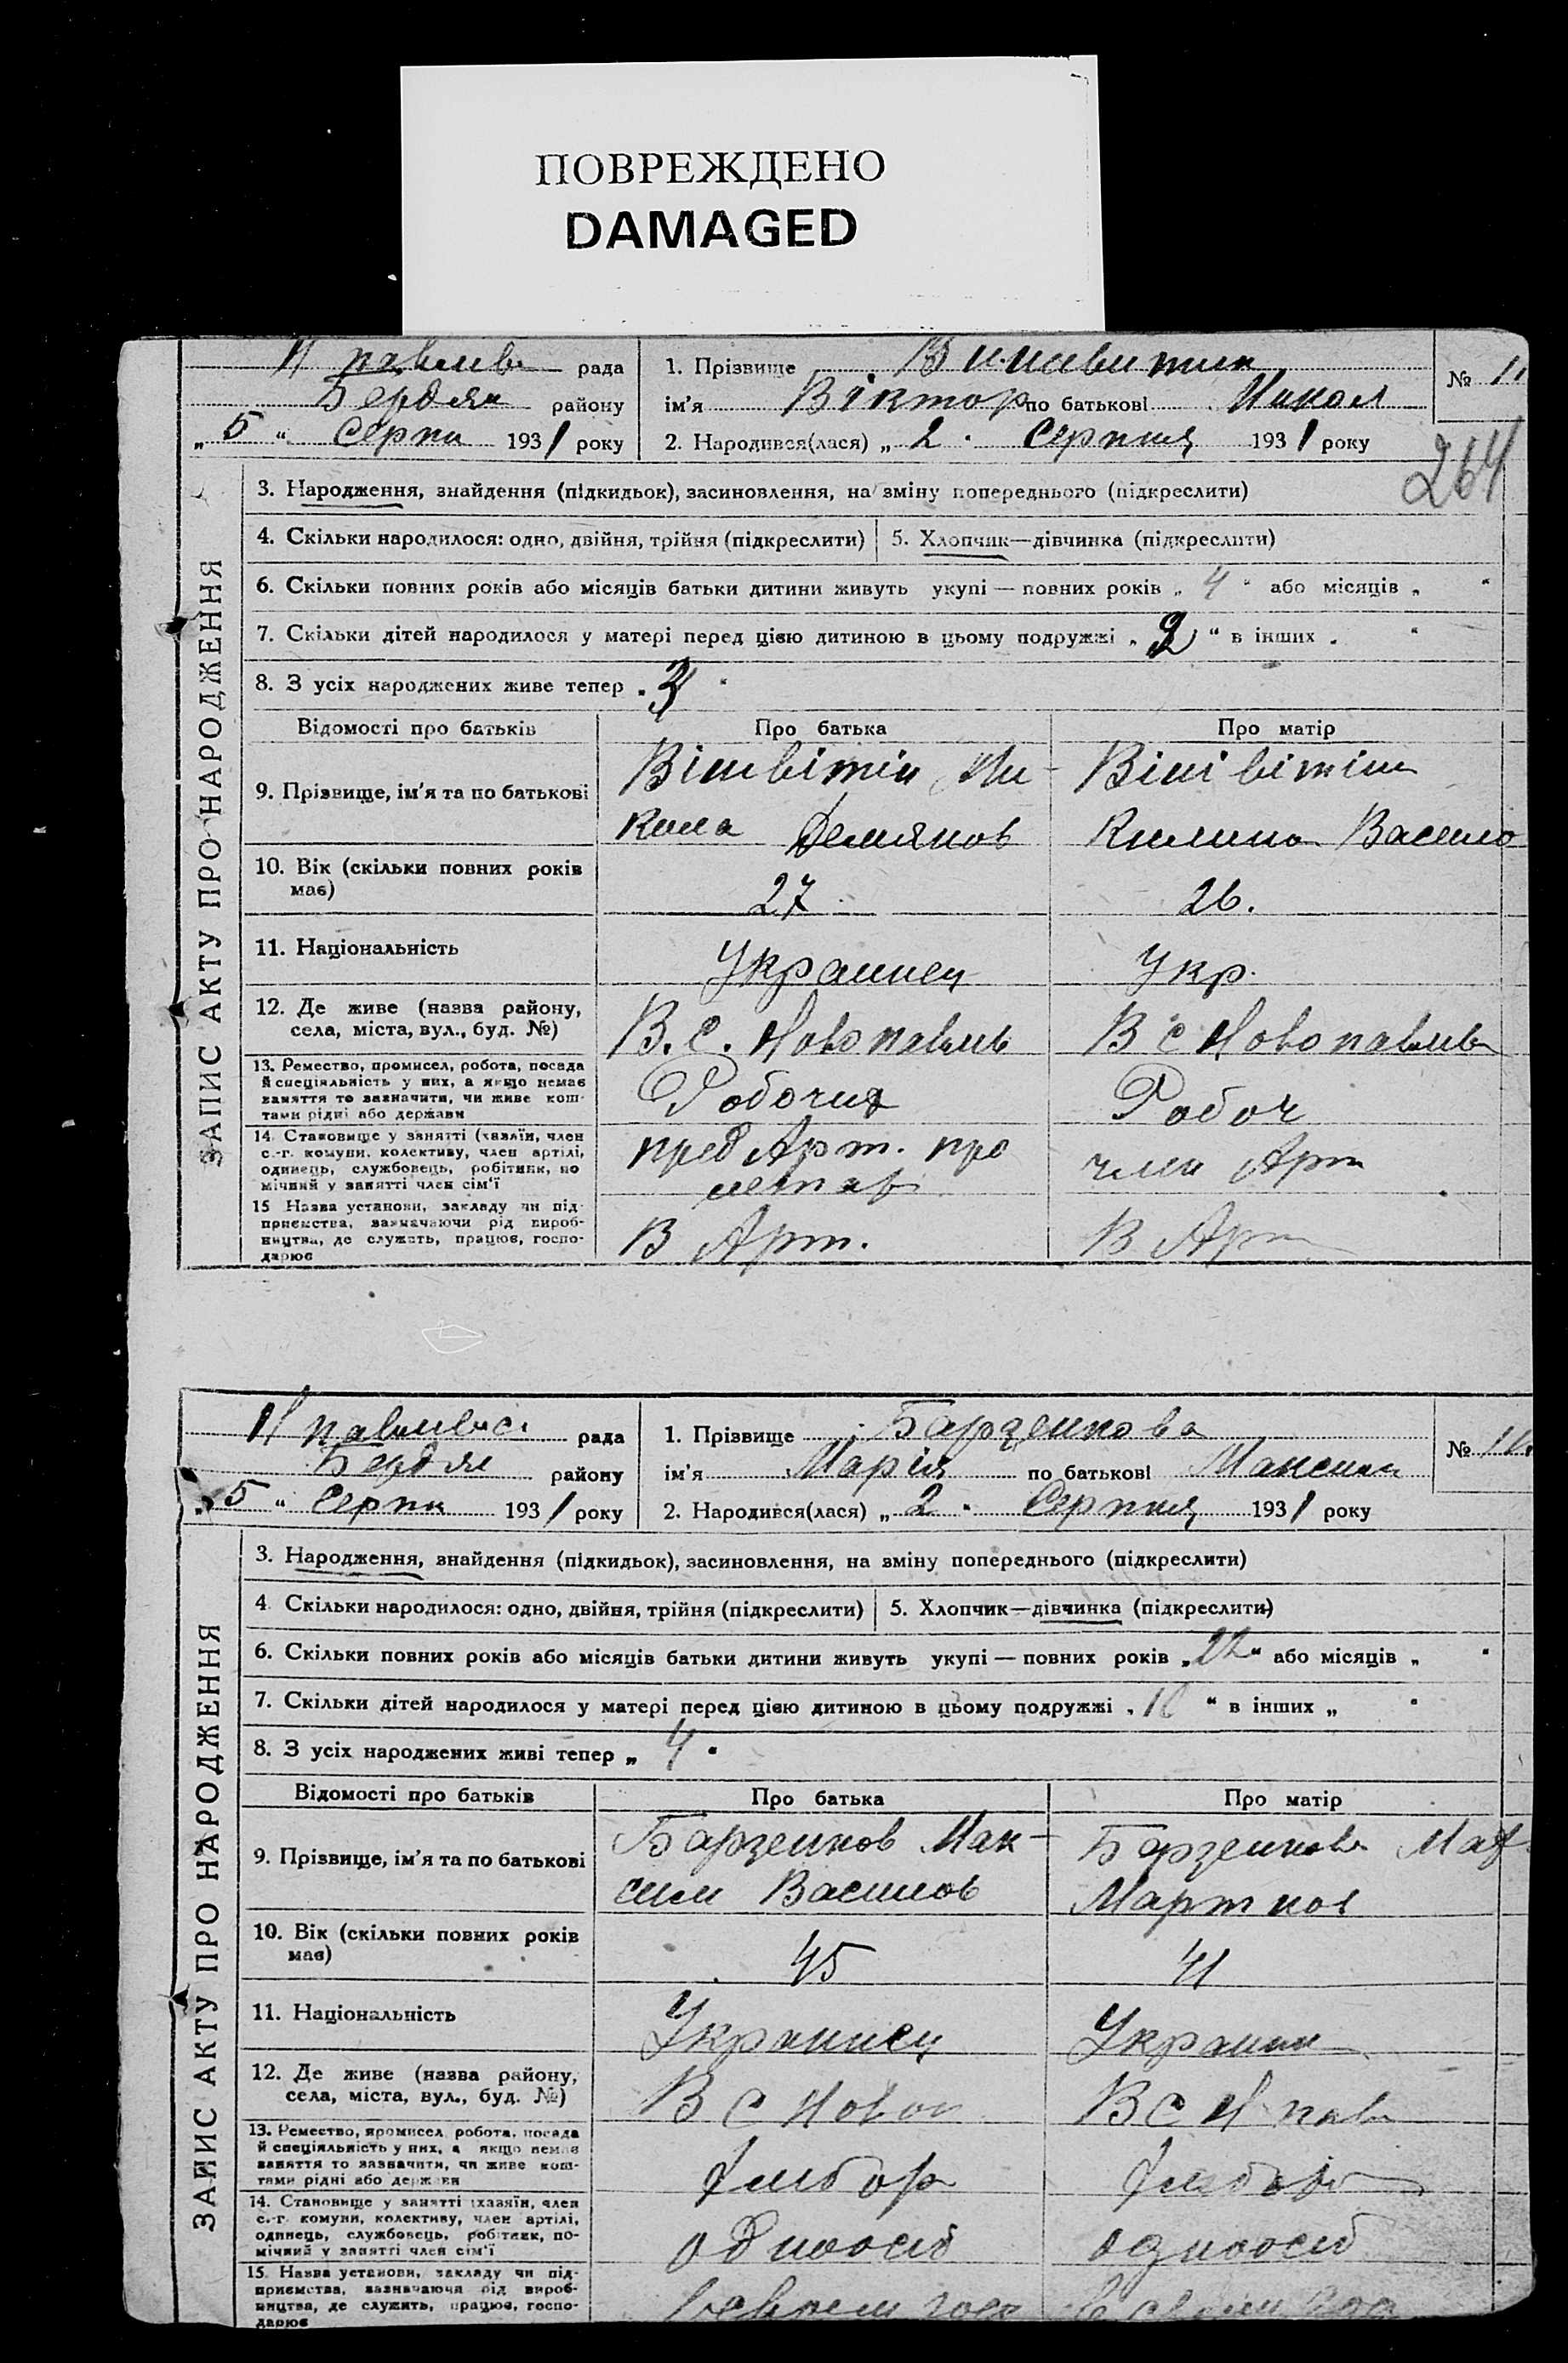 ПОВРЕЖДЕНО
DAMAGED
Н павлівс рада
Бердян району
„ 5 “ Серпн 1931 року
1. Прізвище
ім'я Віктор по батькові Микол
2. Народився(лася) „ 2 “ Серпня 1931 року
№ 1
264
ЗАПИС АКТУ ПРО НАРОДЖЕННЯ
3. Народження, знайдення (підкидьок), засиновлення, на зміну попереднього (підкреслити)
4. Скільки народилося: одно, двійня, трійня (підкреслити)
5. Хлопчик—дівчинка (підкреслити)
6. Скільки повних років або місяців батьки дитини живуть укупі — повних років „ 4 “ або місяців „ “
7. Скільки дітей народилося у матері перед цією дитиною в цьому подружжі „ 2 “ в інших „ “
8. З усіх народжених живе тепер „ 3 “
Відомості про батьків
Про батька
Про матір
9. Прізвище, ім'я та по батькові
Ми-
кола Демянов
Килина Василю
10. Вік (скільки повних років має)
27
26.
11. Національність
Украинец
Укр.
12. Де живе (назва району, села, міста, вул., буд. №)
В. С. Новопавлів
В с Новопавлів
13. Ремество, промисел, робота, посада й спеціяльність у них, а якщо немає заняття то зазначити, чи живе коштами рідні або держави
Робочий
Робоч
14. Становище у занятті (хазяїн, член с.-г. комуни, колективу, член артілі, одинець, службовець, робітник, помічний у занятті член сім'ї
пред Арт. про
летар
член Арт
15 Назва установи, закладу чи підприємства, зазначаючи рід виробництва, де служить, працює, господарює
В Арт.
В Арт
Н павлівс. рада
Бердян району
„ 5 “ Серпн 1931 року
1. Прізвище Барзенкова
ім'я Марія по батькові Максим
2. Народився(лася) „ 2 “ Серпня 1931 року
№ 1
ЗАПИС АКТУ ПРО НАРОДЖЕННЯ
3. Народження, знайдення (підкидьок), засиновлення, на зміну попереднього (підкреслити)
4. Скільки народилося: одно, двійня, трійня (підкреслити)
5. Хлопчик—дівчинка (підкреслити)
6. Скільки повних років або місяців батьки дитини живуть укупі — повних років „ 22 “ або місяців „ “
7. Скільки дітей народилося у матері перед цією дитиною в цьому подружжі „ 10 “ в інших „ “
8. З усіх народжених живі тепер „ 4 “
Відомості про батьків
Про батька
Про матір
9. Прізвище, ім'я та по батькові
Барзенков Мак-
сим Василов
Барзенкова
Мартнов
10. Вік (скільки повних років має)
45
41
11. Національність
Украинец
Украин
12. Де живе (назва району, села, міста, вул., буд. №)
В С Новоп
В С Н павл
13. Ремество, промисел, робота, посада й спеціяльність у них, а якщо немає заняття то зазначити, чи живе коштами рідні або держави
Хлібор
Хлібор
14. Становище у занятті (хазяїн, член с.-г. комуни, колективу, член артілі, одинець, службовець, робітник, помічний у занятті член сім'ї
одноосіб
одноосіб
15. Назва установи, закладу чи підприємства, зазначаючи рід виробництва, де служить, працює, господарює